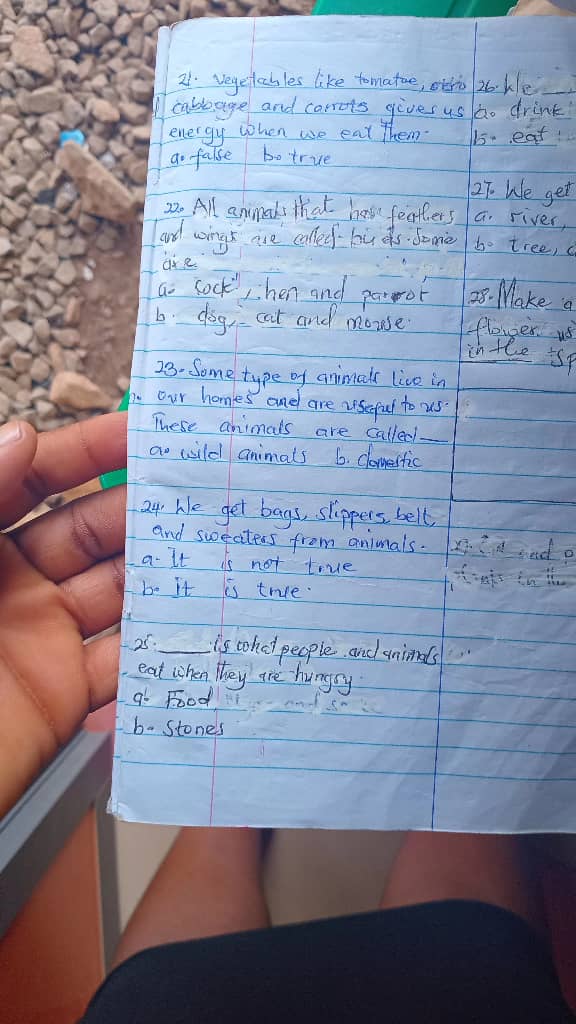 21. Vegetables like tomatoe,
cabbage and carrots gives us
energy when we eat them.
a. false b. true
22. All animals that have feathers
and wings are called birds. Some
are
a. Cock, hen and parrot
b. dog, cat and mouse.
23. Some type of animals live in
our homes and are useful to us.
These animals are called __
a. wild animals b. domestic
24. We get bags, slippers, belt,
and sweaters from animals.
a. It is not true
b. It is true.
25. ____ is what people and animals
eat when they are hungry.
a. Food
b. Stones
26. We __
a. drink
b. eat
27. We get
a. river,
b. tree,
28. Make a
flower
in the